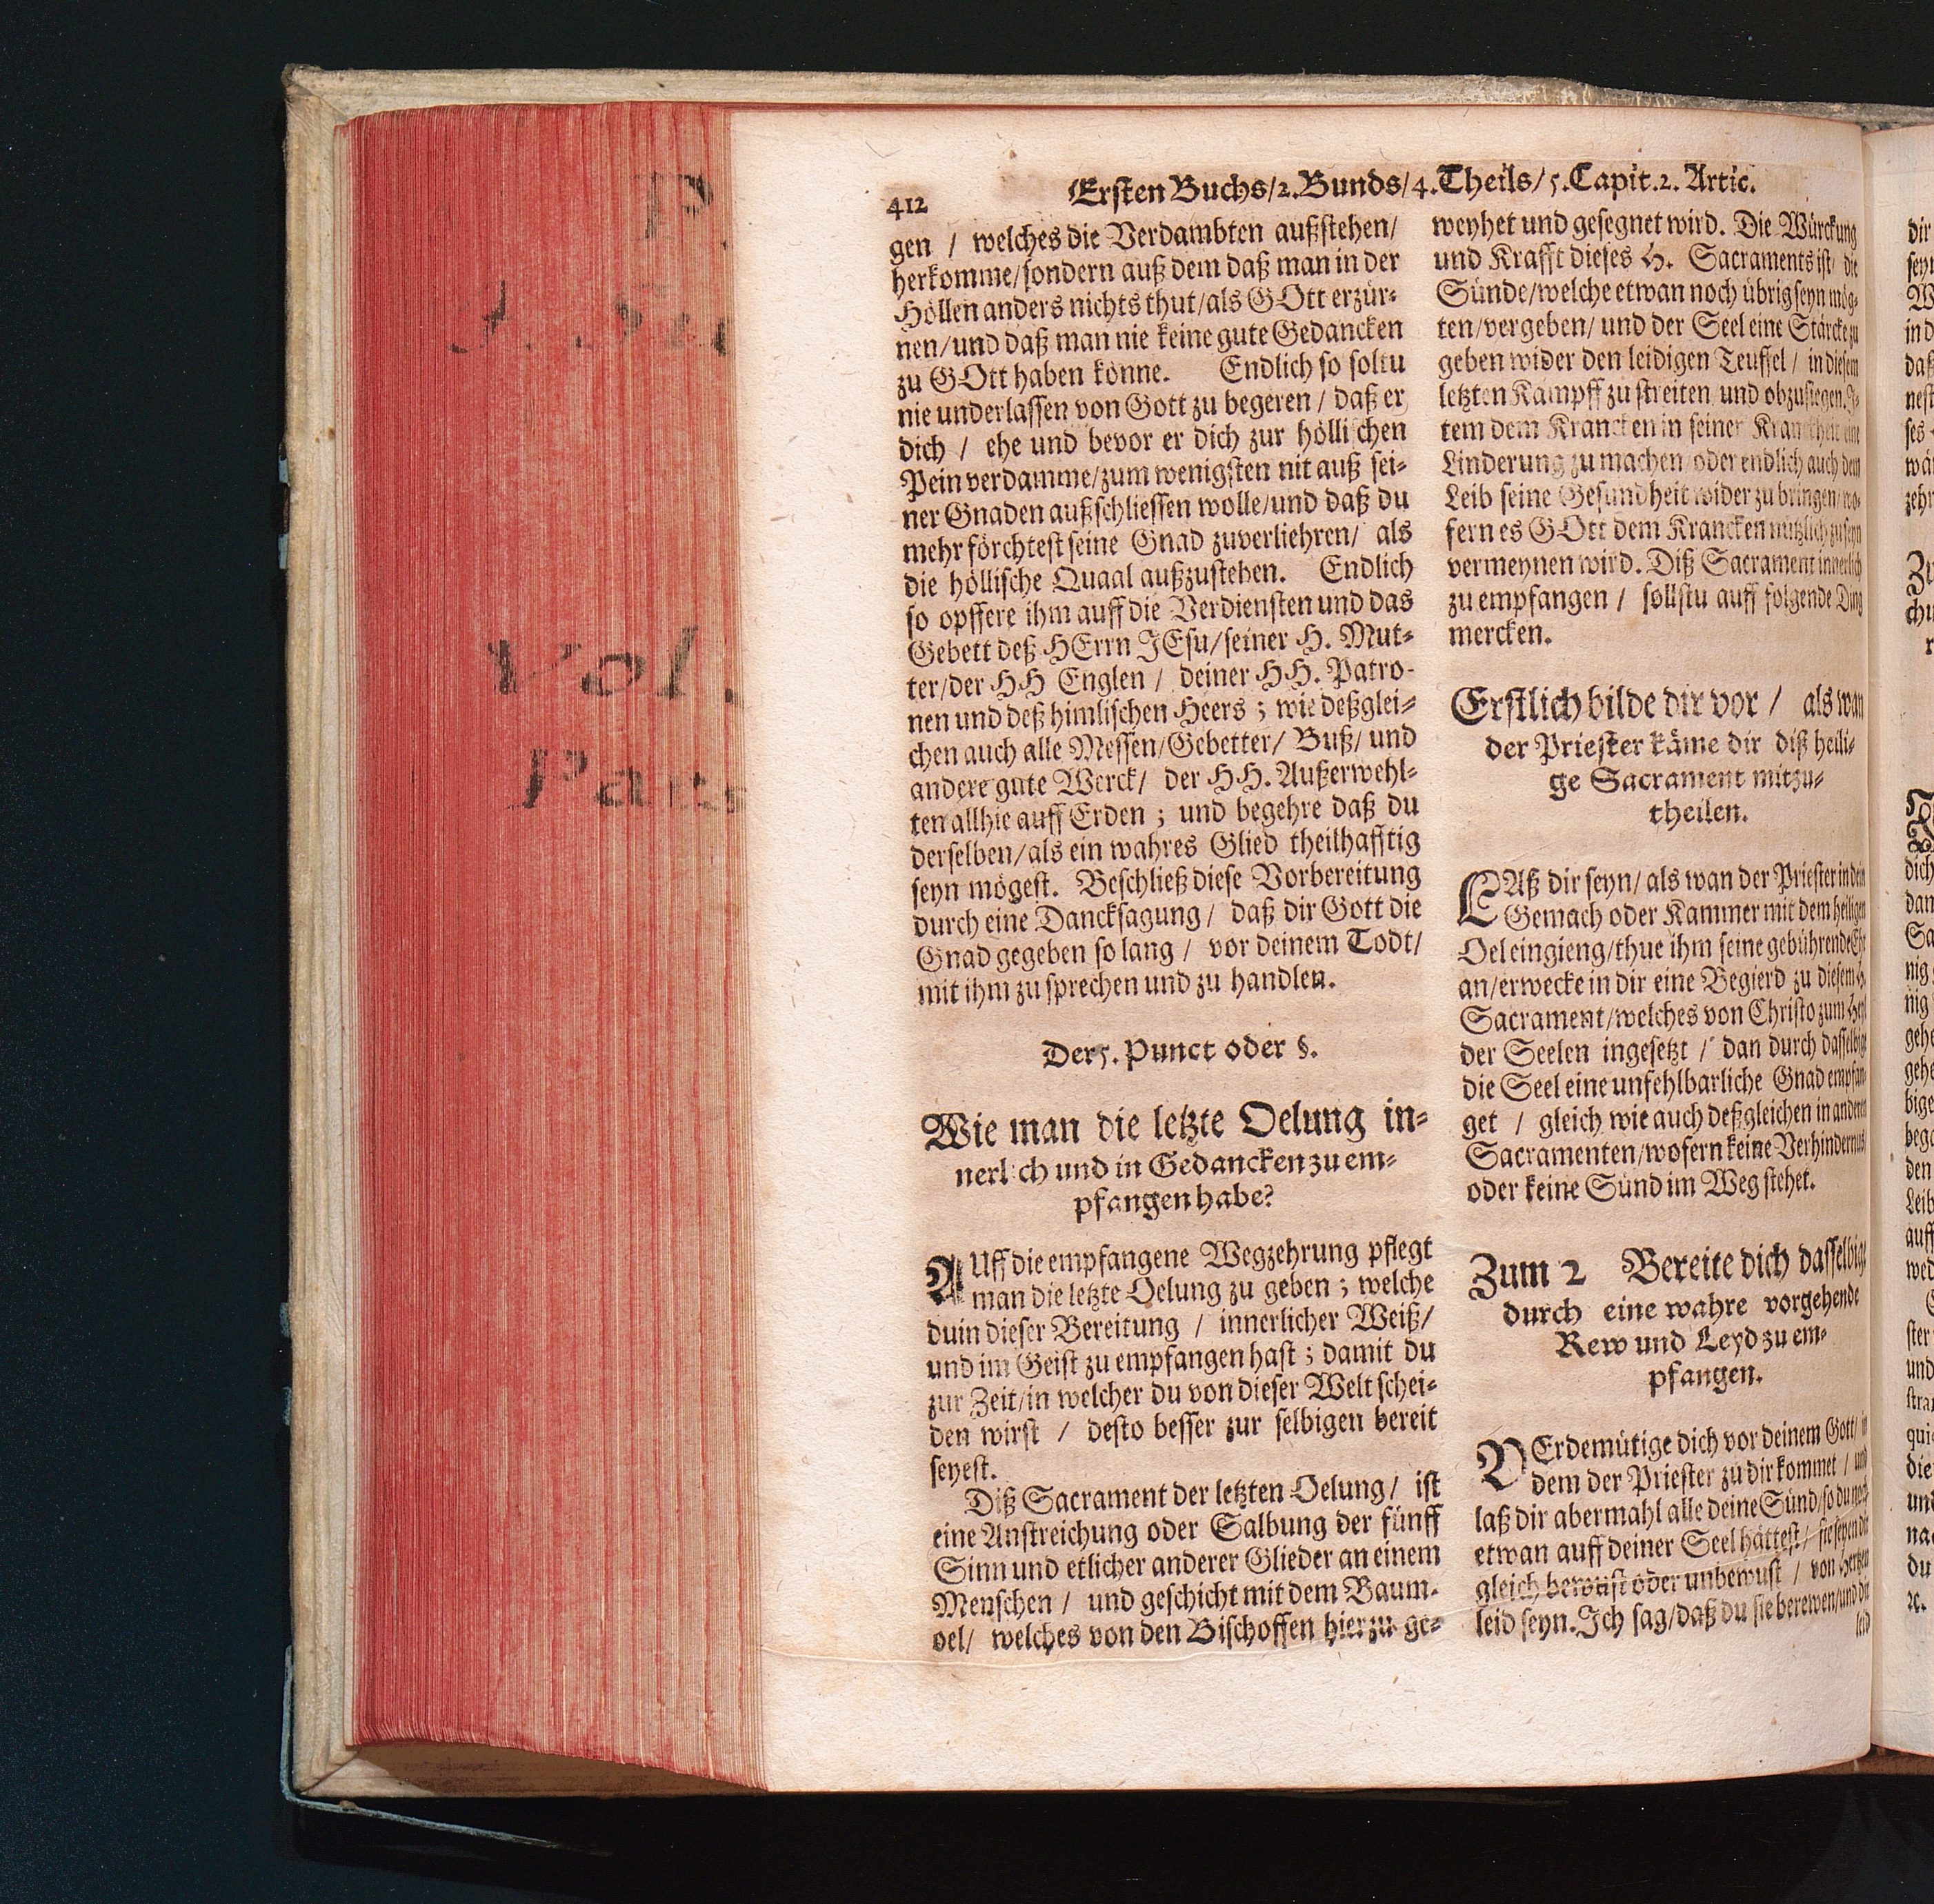 412
Ersten Buchs/2. Bunds/4. Theils/5. Capit. 2. Artic.
gen / welches die Verdambten außstehen/
herkomme/sondern auß dem daß man in der
Höllen anders nichts thut/als GOtt erzür-
nen/und daß man nie keine gute Gedancken
zu GOtt haben könne. Endlich so soltu
nie underlassen von Gott zu begeren / daß er
dich / ehe und bevor er dich zur höllischen
Pein verdamme/zum wenigsten nit auß sei-
ner Gnaden außschliessen wolle/und daß du
mehr förchtest seine Gnad zuverliehren/ als
die höllische Quaal außzustehen. Endlich
so opffere ihm auff die Verdiensten und das
Gebett deß HErrn JEsu/seiner H. Mut-
ter/der HH Englen / deiner HH. Patro-
nen und deß himlischen Heers ; wie deßglei-
chen auch alle Messen/Gebetter/ Buß/ und
andere gute Werck/ der HH. Außerwehl-
ten allhie auff Erden ; und begehre daß du
derselben/als ein wahres Glied theilhafftig
seyn mögest. Beschließ diese Vorbereitung
durch eine Dancksagung / daß dir Gott die
Gnad gegeben so lang / vor deinem Todt/
mit ihm zu sprechen und zu handlen.
Der 5. Punct oder §.
Wie man die letzte Oelung in-
nerlich und in Gedancken zu em-
pfangen habe?
AUff die empfangene Wegzehrung pflegt
man die letzte Oelung zu geben ; welche
du in dieser Bereitung / innerlicher Weiß/
und im Geist zu empfangen hast ; damit du
zur Zeit/in welcher du von dieser Welt schei-
den wirst / desto besser zur selbigen bereit
seyest.
Diß Sacrament der letzten Oelung / ist
eine Anstreichung oder Salbung der fünff
Sinn und etlicher anderer Glieder an einem
Menschen / und geschicht mit dem Baum-
oel/ welches von den Bischoffen hierzu ge-
weyhet und gesegnet wird. Die Würckung
und Krafft dieses H. Sacraments ist/ die
Sünde/welche etwan noch übrig seyn mög-
ten/vergeben/ und der Seel eine Stärcke zu
geben wider den leidigen Teuffel / in diesem
letzten Kampff zu streiten und obzusiegen. J-
tem dem Krancken in seiner Kranckheit eine
Linderung zu machen/oder endlich auch dem
Leib seine Gesundheit wider zu bringen/wo-
fern es GOtt dem Krancken nutzlich zu seyn
vermeynen wird. Diß Sacrament innerlich
zu empfangen / sollstu auff folgende Ding
mercken.
Erstlich bilde dir vor / als wan
der Priester käme dir diß heili-
ge Sacrament mitzu-
theilen.
LAß dir seyn/ als wan der Priester in dein
Gemach oder Kammer mit dem heiligen
Oel eingieng/thue ihm seine gebührende Ehr
an/erwecke in dir eine Begierd zu diesem H.
Sacrament/welches von Christo zum Heyl
der Seelen ingesetzt / dan durch dasselbige
die Seel eine unfehlbarliche Gnad empfan-
get / gleich wie auch deßgleichen in anderen
Sacramenten/wofern keine Verhindernus
oder keine Sünd im Weg stehet.
Zum 2 Bereite dich dasselbige
durch eine wahre vorgehende
Rew und Leyd zu em-
pfangen.
VErdemütige dich vor deinem Gott/ in
dem der Priester zu dir kommet / und
laß dir abermahl alle deine Sünd/so du noch
etwan auff deiner Seel hättest / sie seyen dir
gleich bewust oder unbewust / von Hertzen
leid seyn. Ich sag/daß du sie berewen/und dir
leid
Vol.